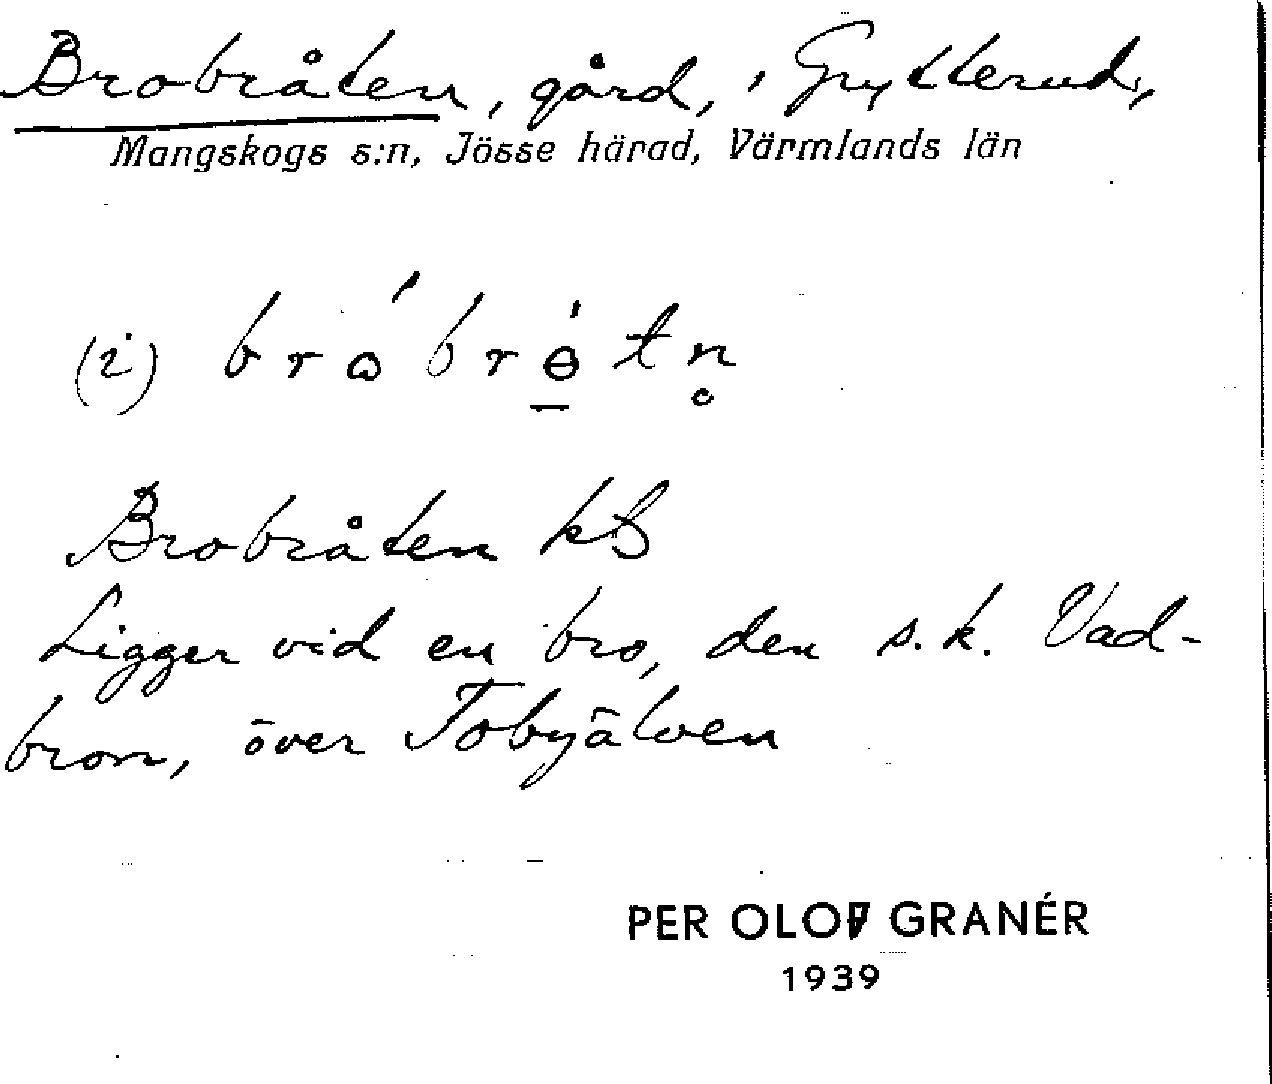 Brobråten, gård, i Grytterud,
Mangskogs s:n, Jösse härad, Värmlands län
(i)
Brobråten
Ligger vid en bro, den s.k. Vad-
bron, över Tobyälven
PER OLOF GRANÉR
1939